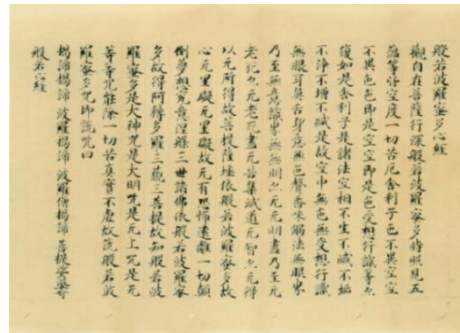 般若波羅蜜多心經
觀自在菩薩行深般若波羅蜜多時照見五
蘊等皆空度一切苦厄舍利子色不異空空
不異色色即是空空即是色受想行識等亦
復如是舍利子是諸法空相不生不滅不垢
不淨不增不減是故空中無色無受想行識
無眼耳鼻舌身意無色聲香味觸法無眼界
乃至無意識界無無明亦无无明盡乃至无
老死亦无老死盡无苦集滅道无智亦无得
以无所得故菩提薩埵依般若波羅蜜多故
心无罣礙无罣礙故无有恐怖遠離一切顛
倒夢想究竟涅槃三世諸佛依般若波羅蜜
多故得阿耨多羅三藐三菩提故知般若波
羅蜜多是大神咒是大明咒是无上咒是无
等等咒能除一切苦真實不虛故說般若波
羅蜜多咒即說咒曰
揭諦揭諦 波羅揭諦 波羅僧揭諦 菩提
般若心經